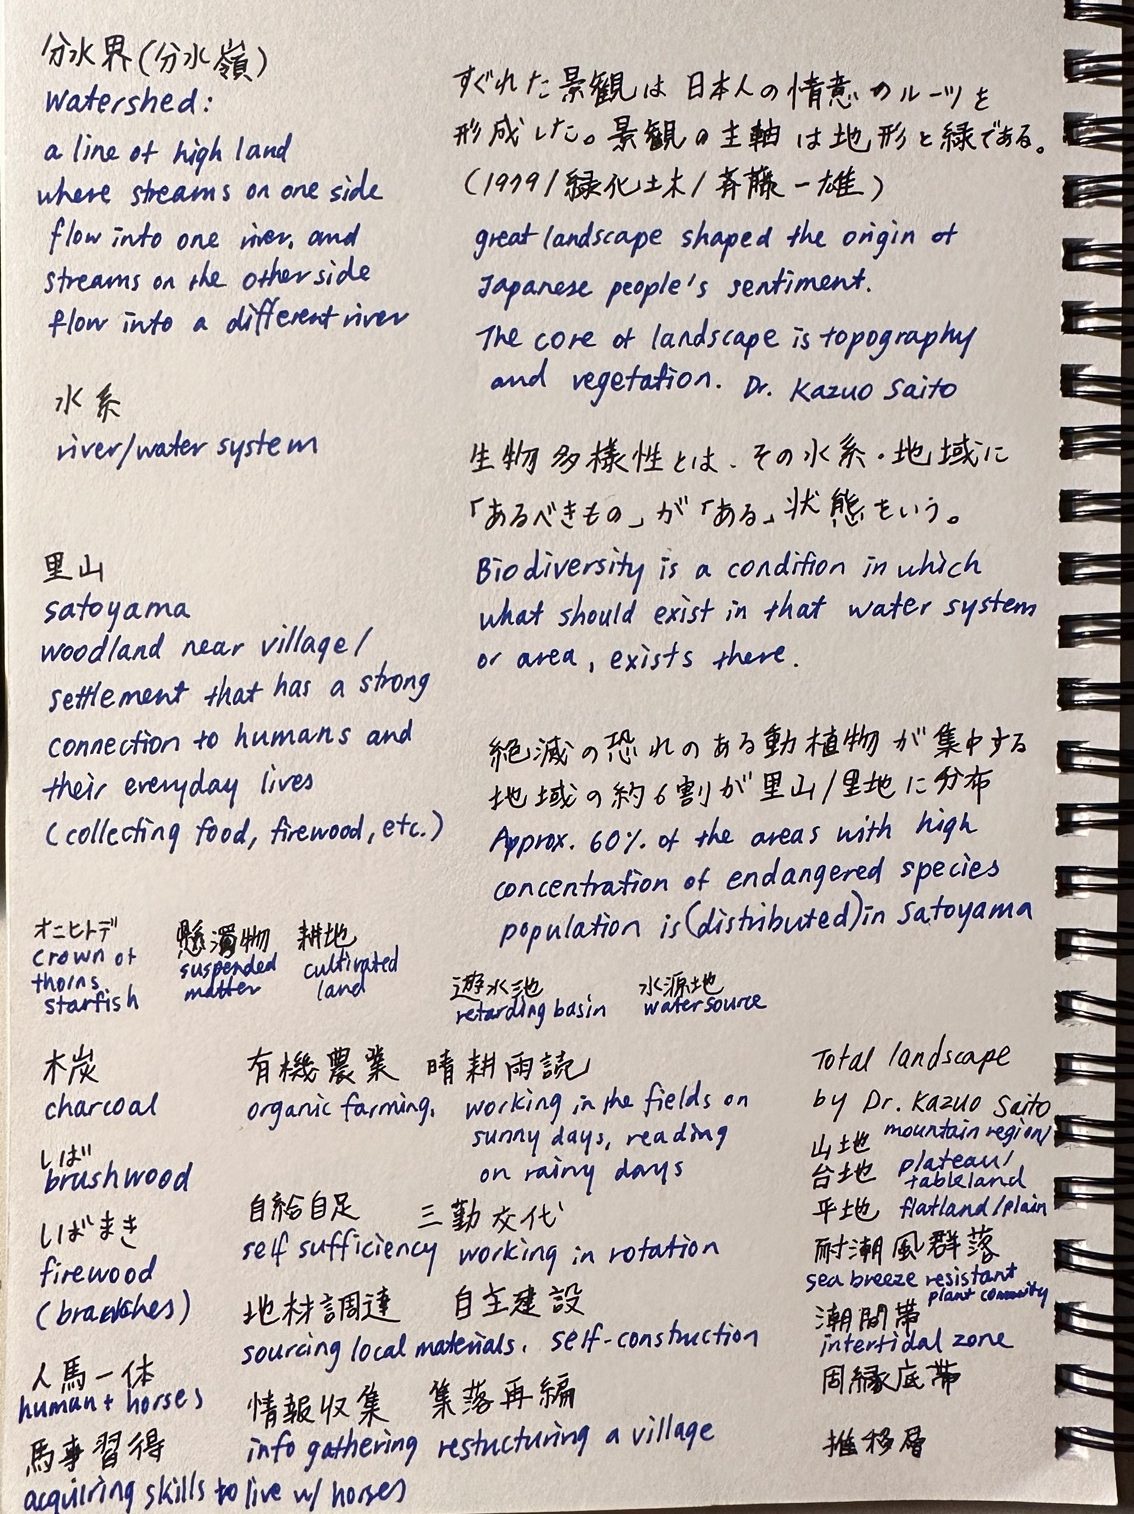 分水界(分水嶺)
watershed:
a line of high land
where streams on one side
flow into one river, and
streams on the other side
flow into a different river
水系
river/water system
里山
satoyama
woodland near village/
settlement that has a strong
connection to humans and
their everyday lives
(collecting food, firewood, etc.)
すぐれた景観は日本人の情意のルーツを
形成した。景観の主軸は地形と緑である。
(1979/緑化土木/斉藤一雄)
great landscape shaped the origin of
Japanese people's sentiment.
The core of landscape is topography
and vegetation. Dr. Kazuo Saito
生物多様性とは、その水系・地域に
「あるべきもの」が「ある」状態をいう。
Biodiversity is a condition in which
what should exist in that water system
or area, exists there.
絶滅の恐れのある動植物が集中する
地域の約6割が里山/里地に分布
Approx. 60% of the areas with high
concentration of endangered species
population is (distributed) in satoyama
オニヒトデ
crown of
thorns
starfish
懸濁物
suspended
matter
耕地
cultivated
land
遊水池
retarding basin
水源地
watersource
木炭
charcoal
しば
brushwood
しばまき
firewood
(branches)
人馬一体
human + horses
馬事習得
acquiring skills to live w/ horses
有機農業
organic farming.
晴耕雨読
working in the fields on
sunny days, reading
on rainy days
自給自足
self sufficiency
三勤交代
working in rotation
地材調達
sourcing local materials.
自主建設
self-construction
情報収集
info gathering
集落再編
restucturing a village
Total landscape
by Dr. Kazuo Saito
山地 mountain region/
台地 plateau/
tableland
平地 flatland/plain
耐潮風群落
sea breeze resistant
plant comunity
潮間帯
intertidal zone
周縁底帯
推移層